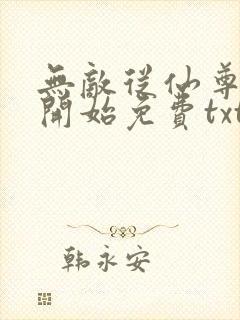 無敵從仙尊
開始免費txt
韩永安